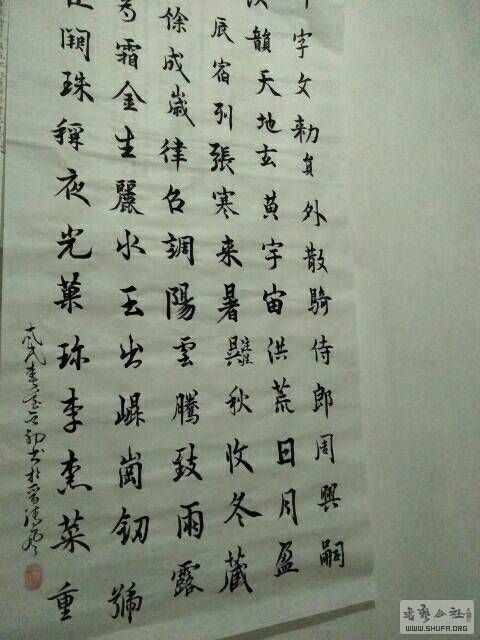 千字文勅員外散騎侍郎周興嗣
次韻天地玄黃宇宙洪荒日月盈
辰宿列張寒来暑秋收冬藏
餘成歲律召調陽雲騰致雨露
為霜金生麗水玉出崐崗釰號
巨闕珠稱夜光菓珍李柰菜重
書藝公社
WWW.SHUFA.ORG